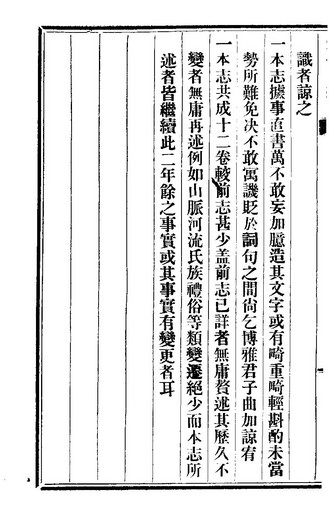 識者諒之
一本志據事直書萬不敢妄加臆造其文字或有畸重畸輕斟酌未當
勢所難免决不敢寓譏貶於詞句之間尙乞博雅君子曲加諒宥
一本志共成十二卷較前志甚少蓋前志已詳者無庸贅述其歷久不
變者無庸再述例如山脈河流氏族禮俗等類變遷絕少而本志所
述者皆繼續此二年餘之事實或其事實有變更者耳